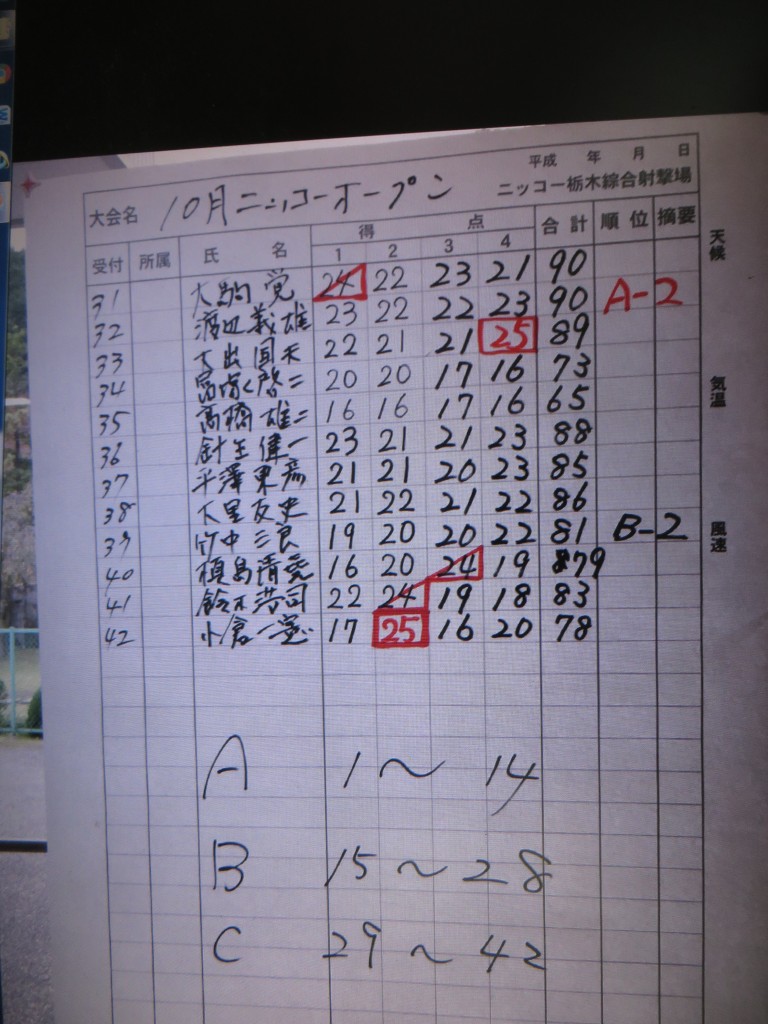 平成 年 月 日
大会名 10月ニッコーオープン ニッコー栃木綜合射撃場
受付 所属 氏 名 得 点 合計 順位 摘要
1 2 3 4
31 大駒 覚 24 22 23 21 90
32 渡辺義雄 23 22 22 23 90 A-2
33 22 21 21 25 89
34 20 20 17 16 73
35 高橋雄二 16 16 17 16 65
36 針生偉一 23 21 21 23 88
37 平澤東彦 21 21 20 23 85
38 大里友史 21 22 21 22 86
39 竹中三良 19 20 20 22 81 B-2
40 槙島清 16 20 24 19 79
41 鈴木浩司 22 24 19 18 83
42 小倉一憲 17 25 16 20 78
天候
気温
風速
A 1〜14
B 15〜28
C 29〜42